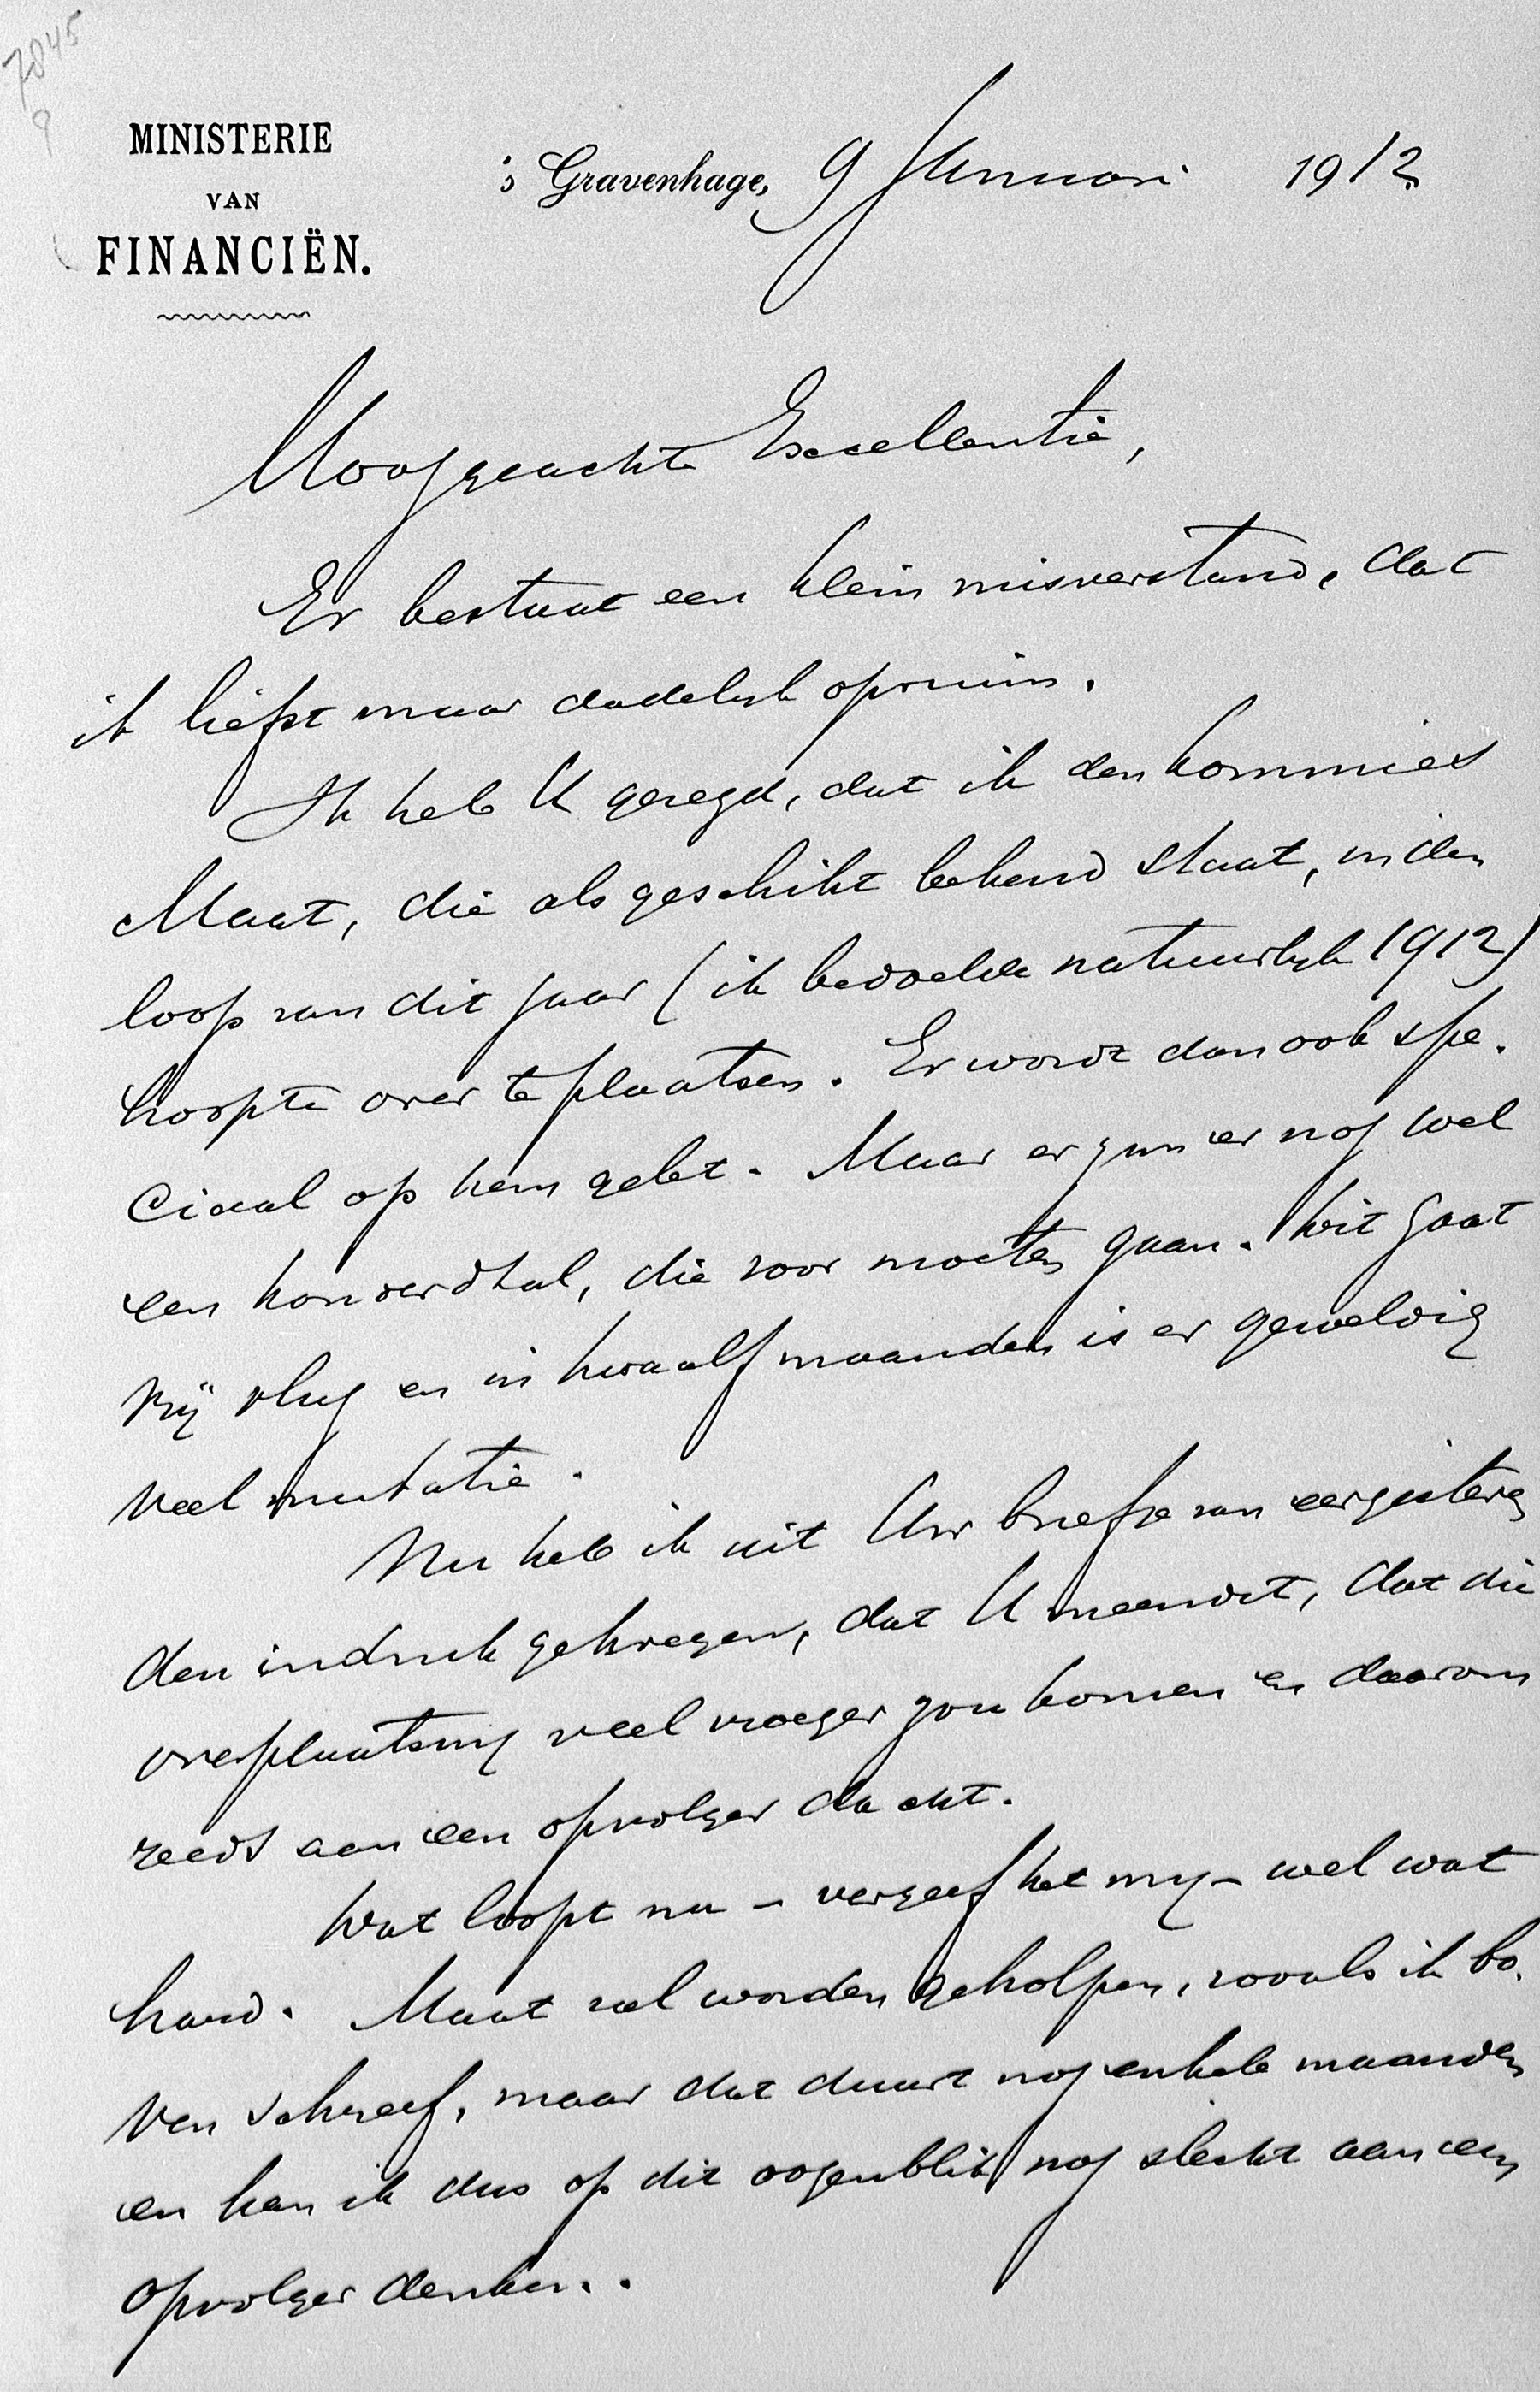 7845
9
MINISTERIE
VAN
FINANCIËN.
's Gravenhage, 9 Januari 1912
Hooggeachte Excellentie,
Er bestaat een klein misverstand, dat
ik liefst maar dadelijk opruim.
Ik heb U gezegd, dat ik den kommies
Maat, die als geschikt bekend staat, in den
loop van dit jaar (ik bedoelde natuurlijk 1912)
hoopte over te plaatsen. Er wordt dan ook spe-
ciaal op hem gelet. Maar er zijn er nog wel
een honderdtal, die voor moeten gaan. Dit gaat
vrij vlug en in twaalf maanden is er geweldig
veel mutatie.
Nu heb ik uit Uw briefje van eergisteren
den indruk gekregen, dat U meendet, dat die
overplaatsing veel vroeger zou komen en daarom
reeds aan een opvolger dacht.
Dat loopt nu – vergeef het mij – wel wat
hard. Maat zal worden geholpen, zooals ik bo-
ven schreef, maar dat duurt nog enkele maanden
en kan ik dus op dit oogenblik nog slecht aan een
opvolger denken.